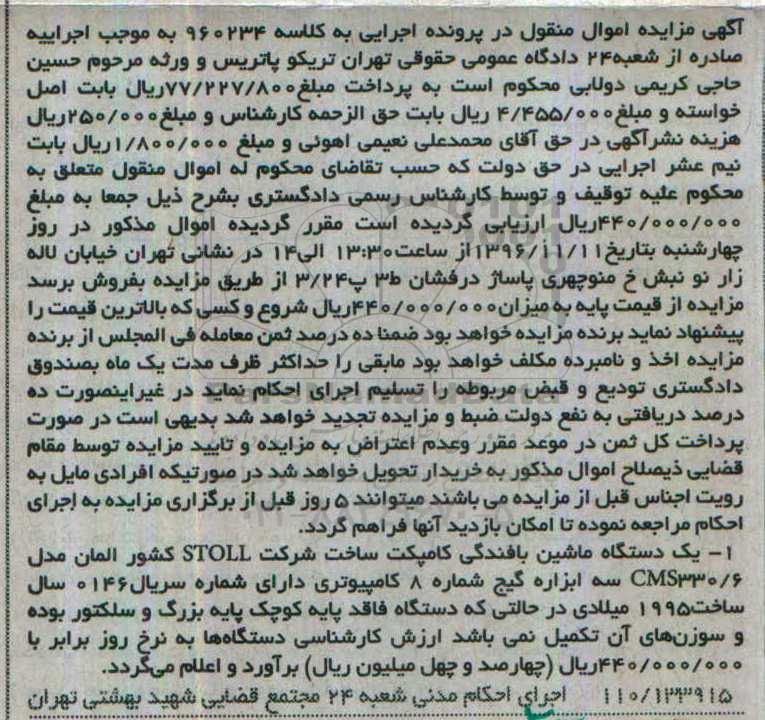 آگهی مزایده اموال منقول در پرونده اجرایی به کلاسه ۹۶۰۲۳۴ به موجب اجراییه
صادره از شعبه۲۴ دادگاه عمومی حقوقی تهران تریکو پاتریس و ورثه مرحوم حسین
حاجی کریمی دولابی محکوم است به پرداخت مبلغ۷۷/۲۲۷/۸۰۰ریال بابت اصل
خواسته و مبلغ۴/۴۵۵/۰۰۰ ریال بابت حق الزحمه کارشناس و مبلغ۲۵۰/۰۰۰ریال
هزینه نشرآگهی در حق آقای محمدعلی نعیمی اهوئی و مبلغ ۱/۸۰۰/۰۰۰ریال بابت
نیم عشر اجرایی در حق دولت که حسب تقاضای محکوم له اموال منقول متعلق به
محکوم علیه توقیف و توسط کارشناس رسمی دادگستری بشرح ذیل جمعا به مبلغ
۴۴۰/۰۰۰/۰۰۰ریال ارزیابی گردیده است مقرر گردیده اموال مذکور در روز
چهارشنبه بتاریخ۱۳۹۶/۱۱/۱۱از ساعت۱۳:۳۰ الی۱۴ در نشانی تهران خیابان لاله
زار نو نبش خ منوچهری پاساژ درفشان ط۳ پ۳/۲۴ از طریق مزایده بفروش برسد
مزایده از قیمت پایه به میزان۴۴۰/۰۰۰/۰۰۰ریال شروع و کسی که بالاترین قیمت را
پیشنهاد نماید برنده مزایده خواهد بود ضمنا ده درصد ثمن معامله فی المجلس از برنده
مزایده اخذ و نامبرده مکلف خواهد بود مابقی را حداکثر ظرف مدت یک ماه بصندوق
دادگستری تودیع و قبض مربوطه را تسلیم اجرای احکام نماید در غیراینصورت ده
درصد دریافتی به نفع دولت ضبط و مزایده تجدید خواهد شد بدیهی است در صورت
پرداخت کل ثمن در موعد مقرر وعدم اعتراض به مزایده و تایید مزایده توسط مقام
قضایی ذیصلاح اموال مذکور به خریدار تحویل خواهد شد در صورتیکه افرادی مایل به
رویت اجناس قبل از مزایده می باشند میتوانند ۵ روز قبل از برگزاری مزایده به اجرای
احکام مراجعه نموده تا امکان بازدید آنها فراهم گردد.
۱- یک دستگاه ماشین بافندگی کامپکت ساخت شرکت STOLL کشور المان مدل
CMS۳۳۰/۶ سه ابزاره گیج شماره ۸ کامپیوتری دارای شماره سریال۰۱۴۶ سال
ساخت۱۹۹۵ میلادی در حالتی که دستگاه فاقد پایه کوچک پایه بزرگ و سلکتور بوده
و سوزن‌های آن تکمیل نمی باشد ارزش کارشناسی دستگاه‌ها به نرخ روز برابر با
۴۴۰/۰۰۰/۰۰۰ریال (چهارصد و چهل میلیون ریال) برآورد و اعلام می‌گردد.
۱۱۰/۱۳۳۹۱۵ اجرای احکام مدنی شعبه ۲۴ مجتمع قضایی شهید بهشتی تهران